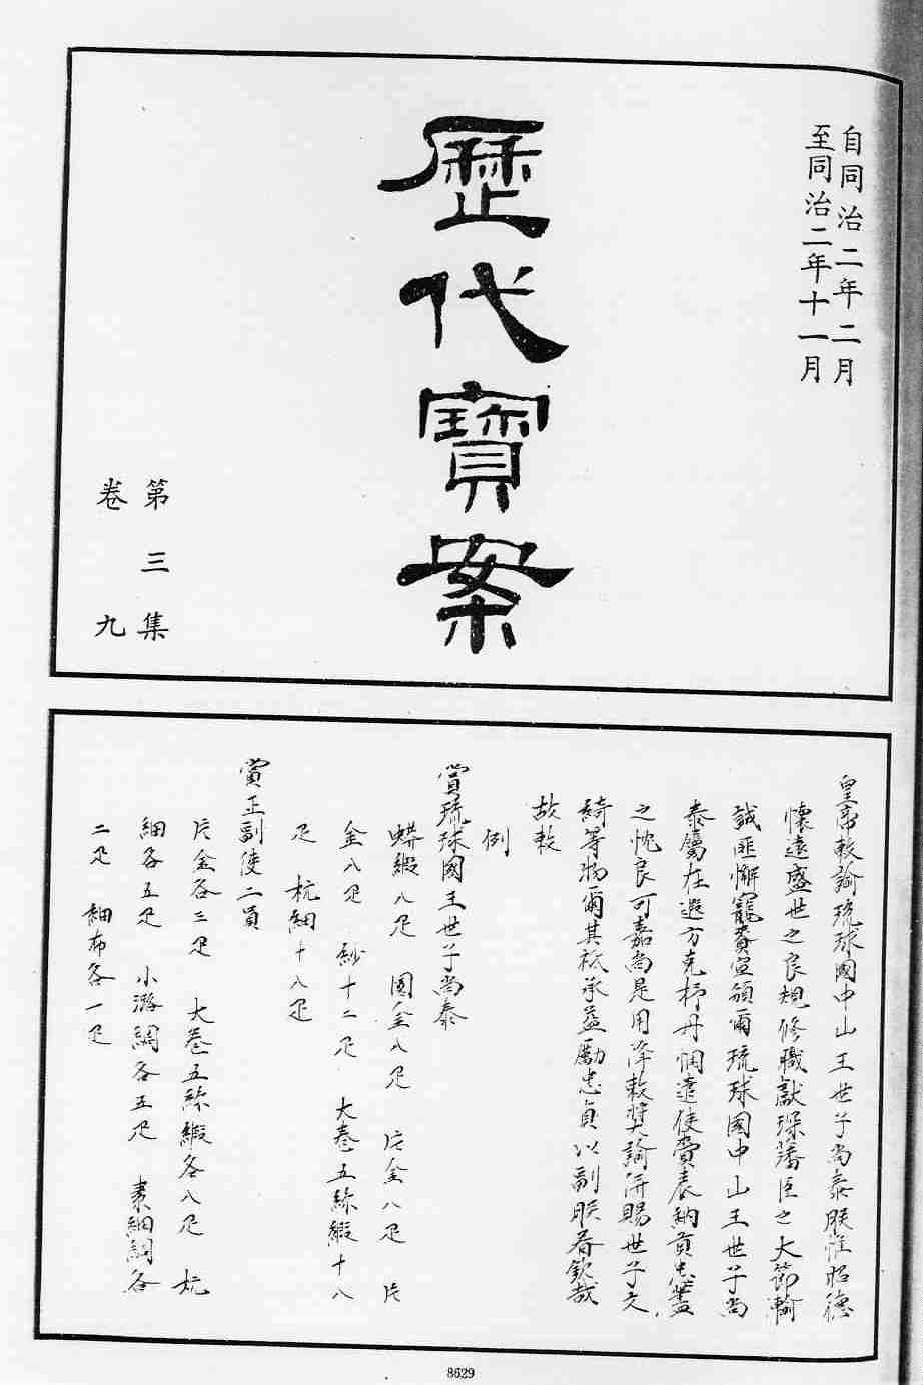 自同治二年二月
至同治二年十一月
歷代寶案
第三集
卷九
皇帝敕諭琉球國中山王世子尚泰朕惟昭德
懷遠盛世之良規修職獻琛藩臣之大節輸
誠匪懈寵賚宣頒爾琉球國中山王世子尚
泰屬在遐方克抒丹悃遣使賫表納貢忠藎
之忱良可嘉尚是用降敕奬諭併賜世子文
綺等物爾其祗承益勵忠貞以副朕眷欽哉
故敕
例
賞琉球國王世子尚泰
蟒緞八疋 國金八疋 片金八疋 片
金八疋 紗十二疋 大卷五絲緞十八
疋 杭細十八疋
賞正副使二員
片金各三疋 大卷五絲緞各八疋 杭
細各五疋 小潞綢各五疋 素細綢各
二疋 細布各一疋
8629